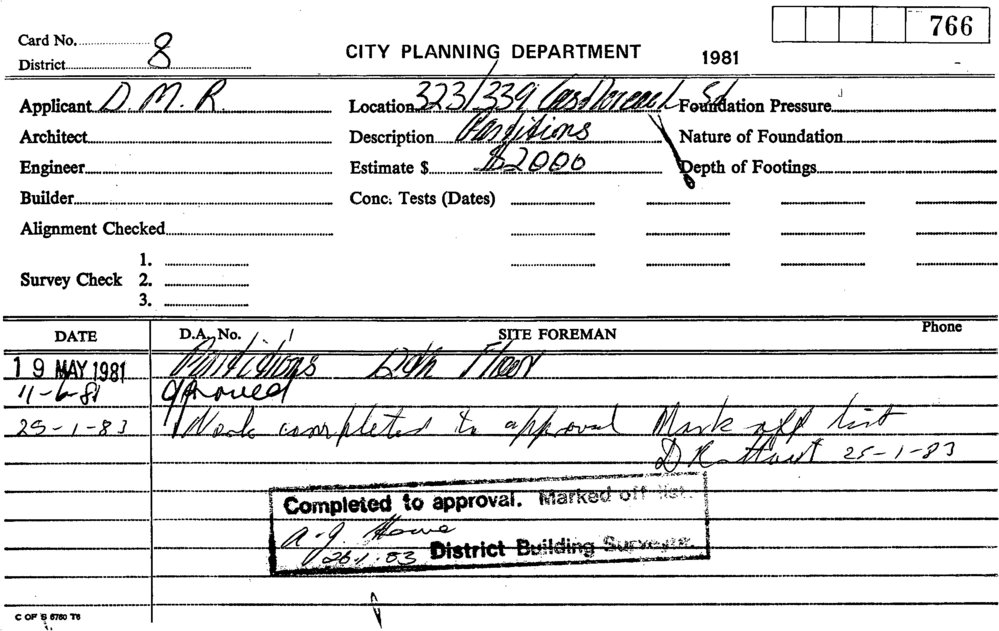 766
Card No.
District 8
CITY PLANNING DEPARTMENT 1981
Applicant D. M. R. Location 323/339 Castlereagh St Foundation Pressure
Architect Description Partitions Nature of Foundation
Engineer Estimate $ $2000 Depth of Footings
Builder Conc. Tests (Dates)
Alignment Checked
1.
Survey Check 2.
3.
DATE D.A. No. SITE FOREMAN Phone
19 MAY 1981 Partitions Floor
11-6-81 approved
25-1-83 Work completed to approval Mark off list
25-1-83
Completed to approval. Marked off list.
A.J. Howe
District Building Surveyor.
C OF S 6760 T6